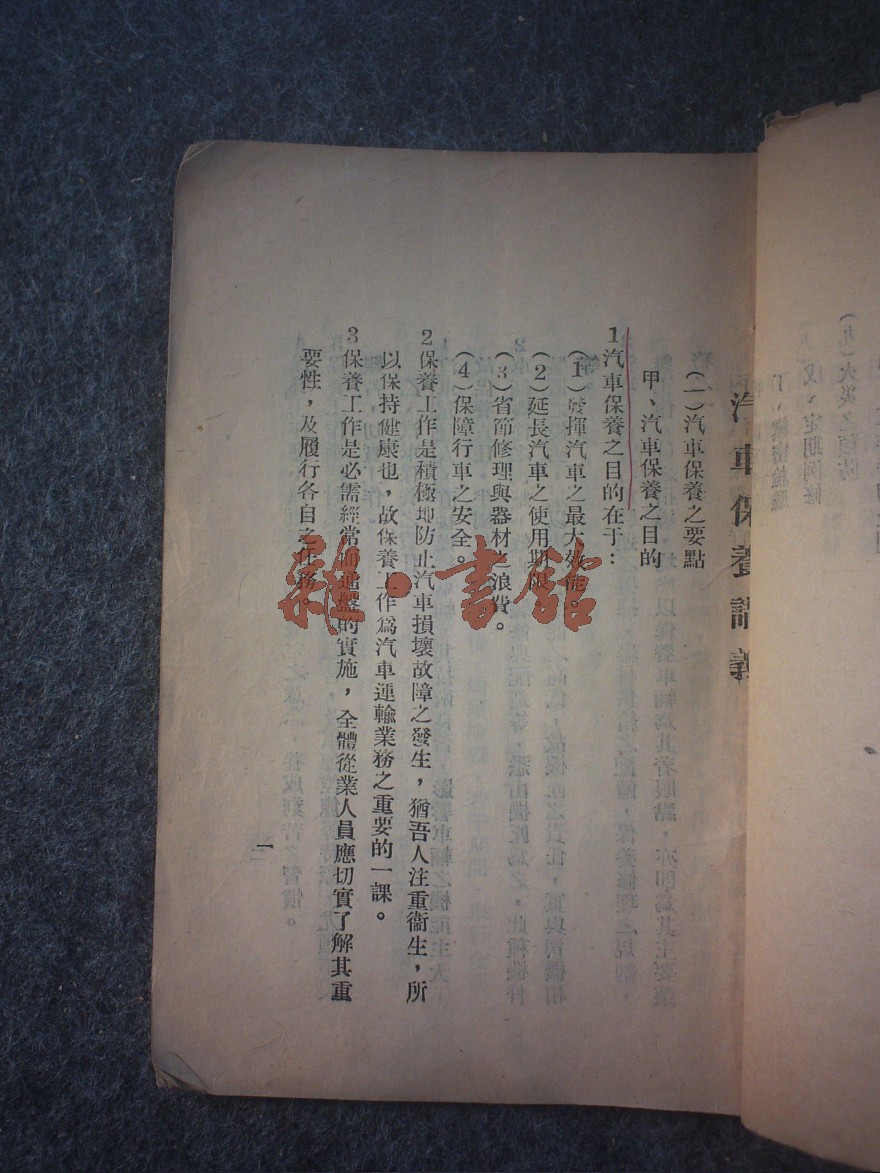 汽車保養講義
(一)汽車保養之要點
甲、汽車保養之目的
1汽車保養之目的在于：
(1)發揮汽車之最大效能。
(2)延長汽車之使用期限
(3)省節修理與器材之浪費。
(4)保障行車之安全。
2保養工作是積極地防止汽車損壞故障之發生，猶吾人注重衞生，所
以保持健康也，故保養工作爲汽車運輸業務之重要的一課。
3保養工作是必需經常而通盤的實施，全體從業人員應切實了解其重
要性，及履行各自之任務
一
雜·書館
(九)火災之預防
戊、定期例修